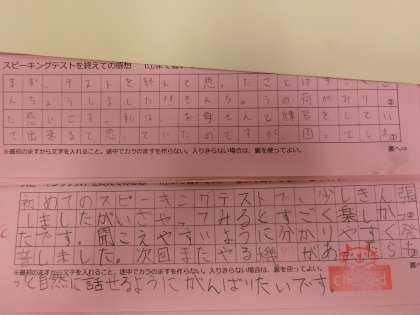 スピーキングテストを終えての感想
まず、テストを終えて思ったことは、すごくき
んちょうしましたがきんちょうの荷がおり
た思いです。私は、お母さんと練習をしてい
て出来ると思っていたのですが、困ってしま
※最初のますから文字を入れること。途中でカラのますを作らない。入りきらない場合は、裏を使ってよい。
裏へ⇒
スピーキングテストを終えての感想
初めてのスピーキングテストで、少しきん張
しましたがいざやってみるとすごく楽しかっ
たです。聞こえやすいように分かりやすく発
音しました。次回またやる機会があったらも
※最初のますから文字を入れること。途中でカラのますを作らない。入りきらない場合は、裏を使ってよい。
っと自然に話せるようにがんばりたいです。
Checked